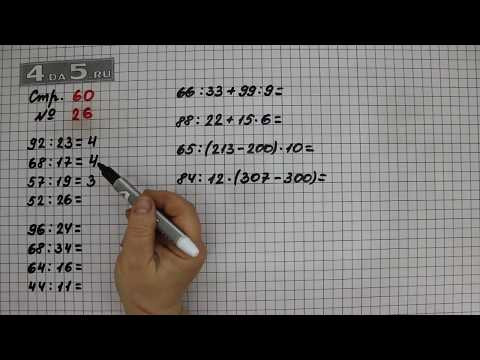 4 DA 5.RU
Стр. 60
№ 26
92:23=4
68:17=4
57:19=3
52:26=
96:24=
68:34=
64:16=
44:11=
66:33+99:9=
88:22+15·6=
65:(213-200)·10=
84:12·(307-300)=